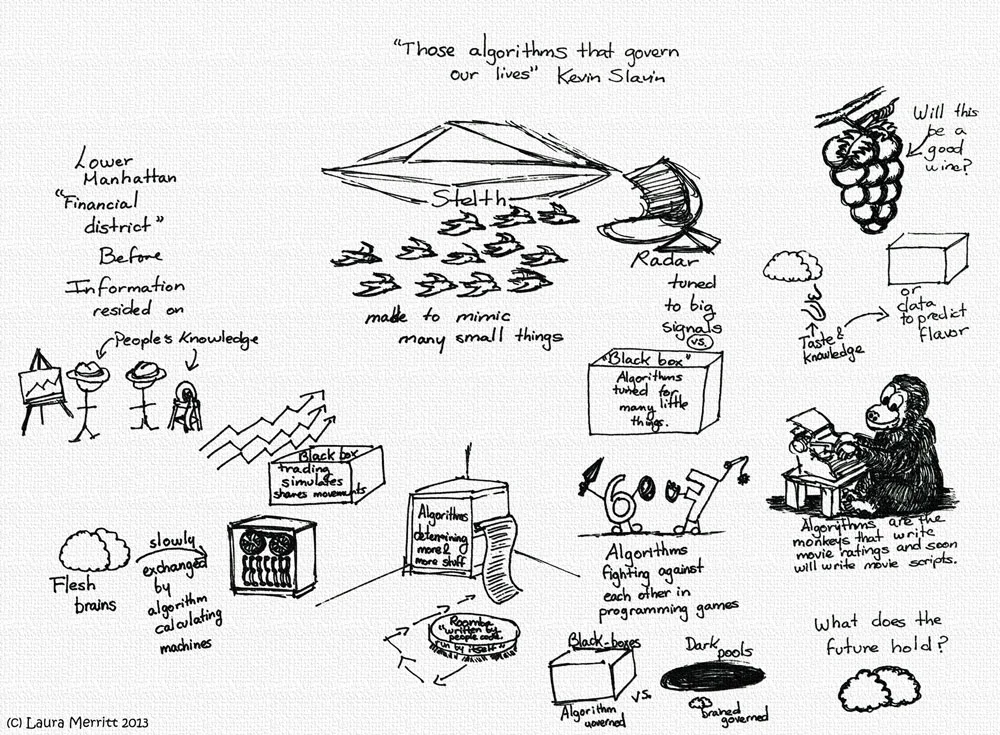 "Those algorithms that govern
our lives" Kevin Slavin
Lower
Manhattan
"Financial
district"
Before
Information
resided on
People's Knowledge
Stelth
made to mimic
many small things
Radar
tuned
to big
signals
vs.
"Black box"
Algorithms
tuned for
many little
things.
Will this
be a
good
wine?
Taste &
Knowledge
or
data
to predict
flavor
Black box
trading
simulates
shares movements
Flesh
brains
slowly
exchanged
by
algorithm
calculating
machines
Algorithms
determining
more &
more stuff
Roomba
"written by
people code.
run by itself"
6
7
Algorithms
fighting against
each other in
programming games
Algorythms are the
monkeys that write
movie ratings and soon
will write movie scripts.
Black-boxes
Algorithm
governed
vs.
Dark
pools
brained
governed
What does the
future hold?
(c) Laura Merritt 2013